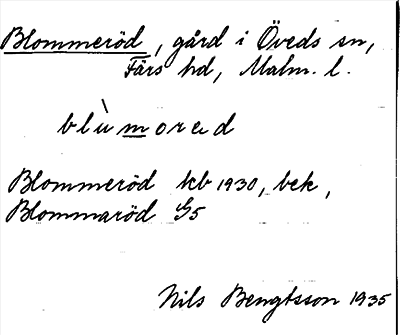 Blommeröd, gård i Öveds sn,
Färs hd, Malm. l.
blùmorөd
Blommeröd kb 1930, bek,
Blommaröd G5
Nils Bengtsson 1935